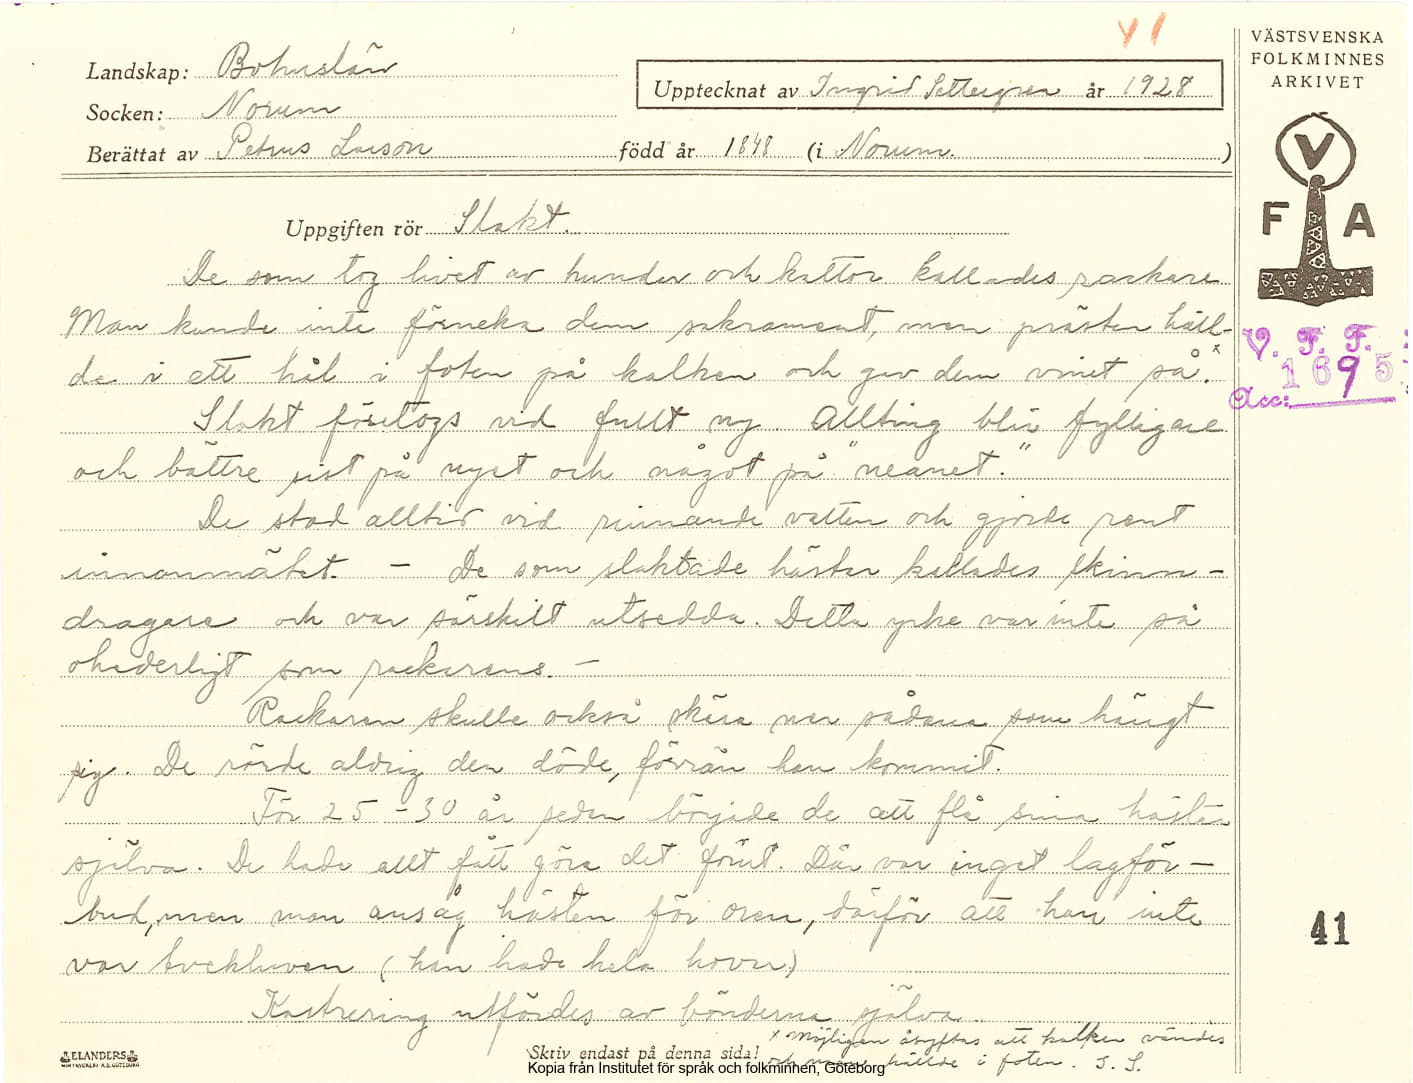 VI
Landskap: Bohuslän
Upptecknat av Ingrid Settergren år 1928
Socken: Norum
Berättat av Petrus Larson född år 1848 (i Norum.)
VÄSTSVENSKA
FOLKMINNES
ARKIVET
V
F A
V. F. F.
1695
Acc:
Uppgiften rör Slakt.
De som tog livet av hundar och kattor kallades rackare
Man kunde inte förneka dem sakrament, men prästen häll-
de i ett hål i foten på kalken och gav dem vinet så.x
Slakt företogs vid fullt ny. Allting blir fylligare
och bättre sist på nyet och något på "neanet."
De stod alltid vid rinnande vatten och gjorde rent
innanmätet. - De som slaktade hästar kallades skinn-
dragare och var särskilt utsedda. Detta yrke var inte så
ohederligt som rackarens. -
Rackaren skulle också skära ner sådana som hängt
sig. De rörde aldrig den döde, förrän han kommit.
För 25-30 år sedan började de att flå sina hästar
själva. De hade allt fått göra det förut. Där var inget lagför-
bud, men man ansåg hästen för oren, därför att han inte
var tveklöven (han hade hela hovar)
Kastrering utfördes av bönderna själva.
x Möjligen åsyftas att kalken vändes
och vinet hällde i foten. I. S.
41
ELANDERS
Skriv endast på denna sida!
Kopia från Institutet för språk och folkminnen, Göteborg